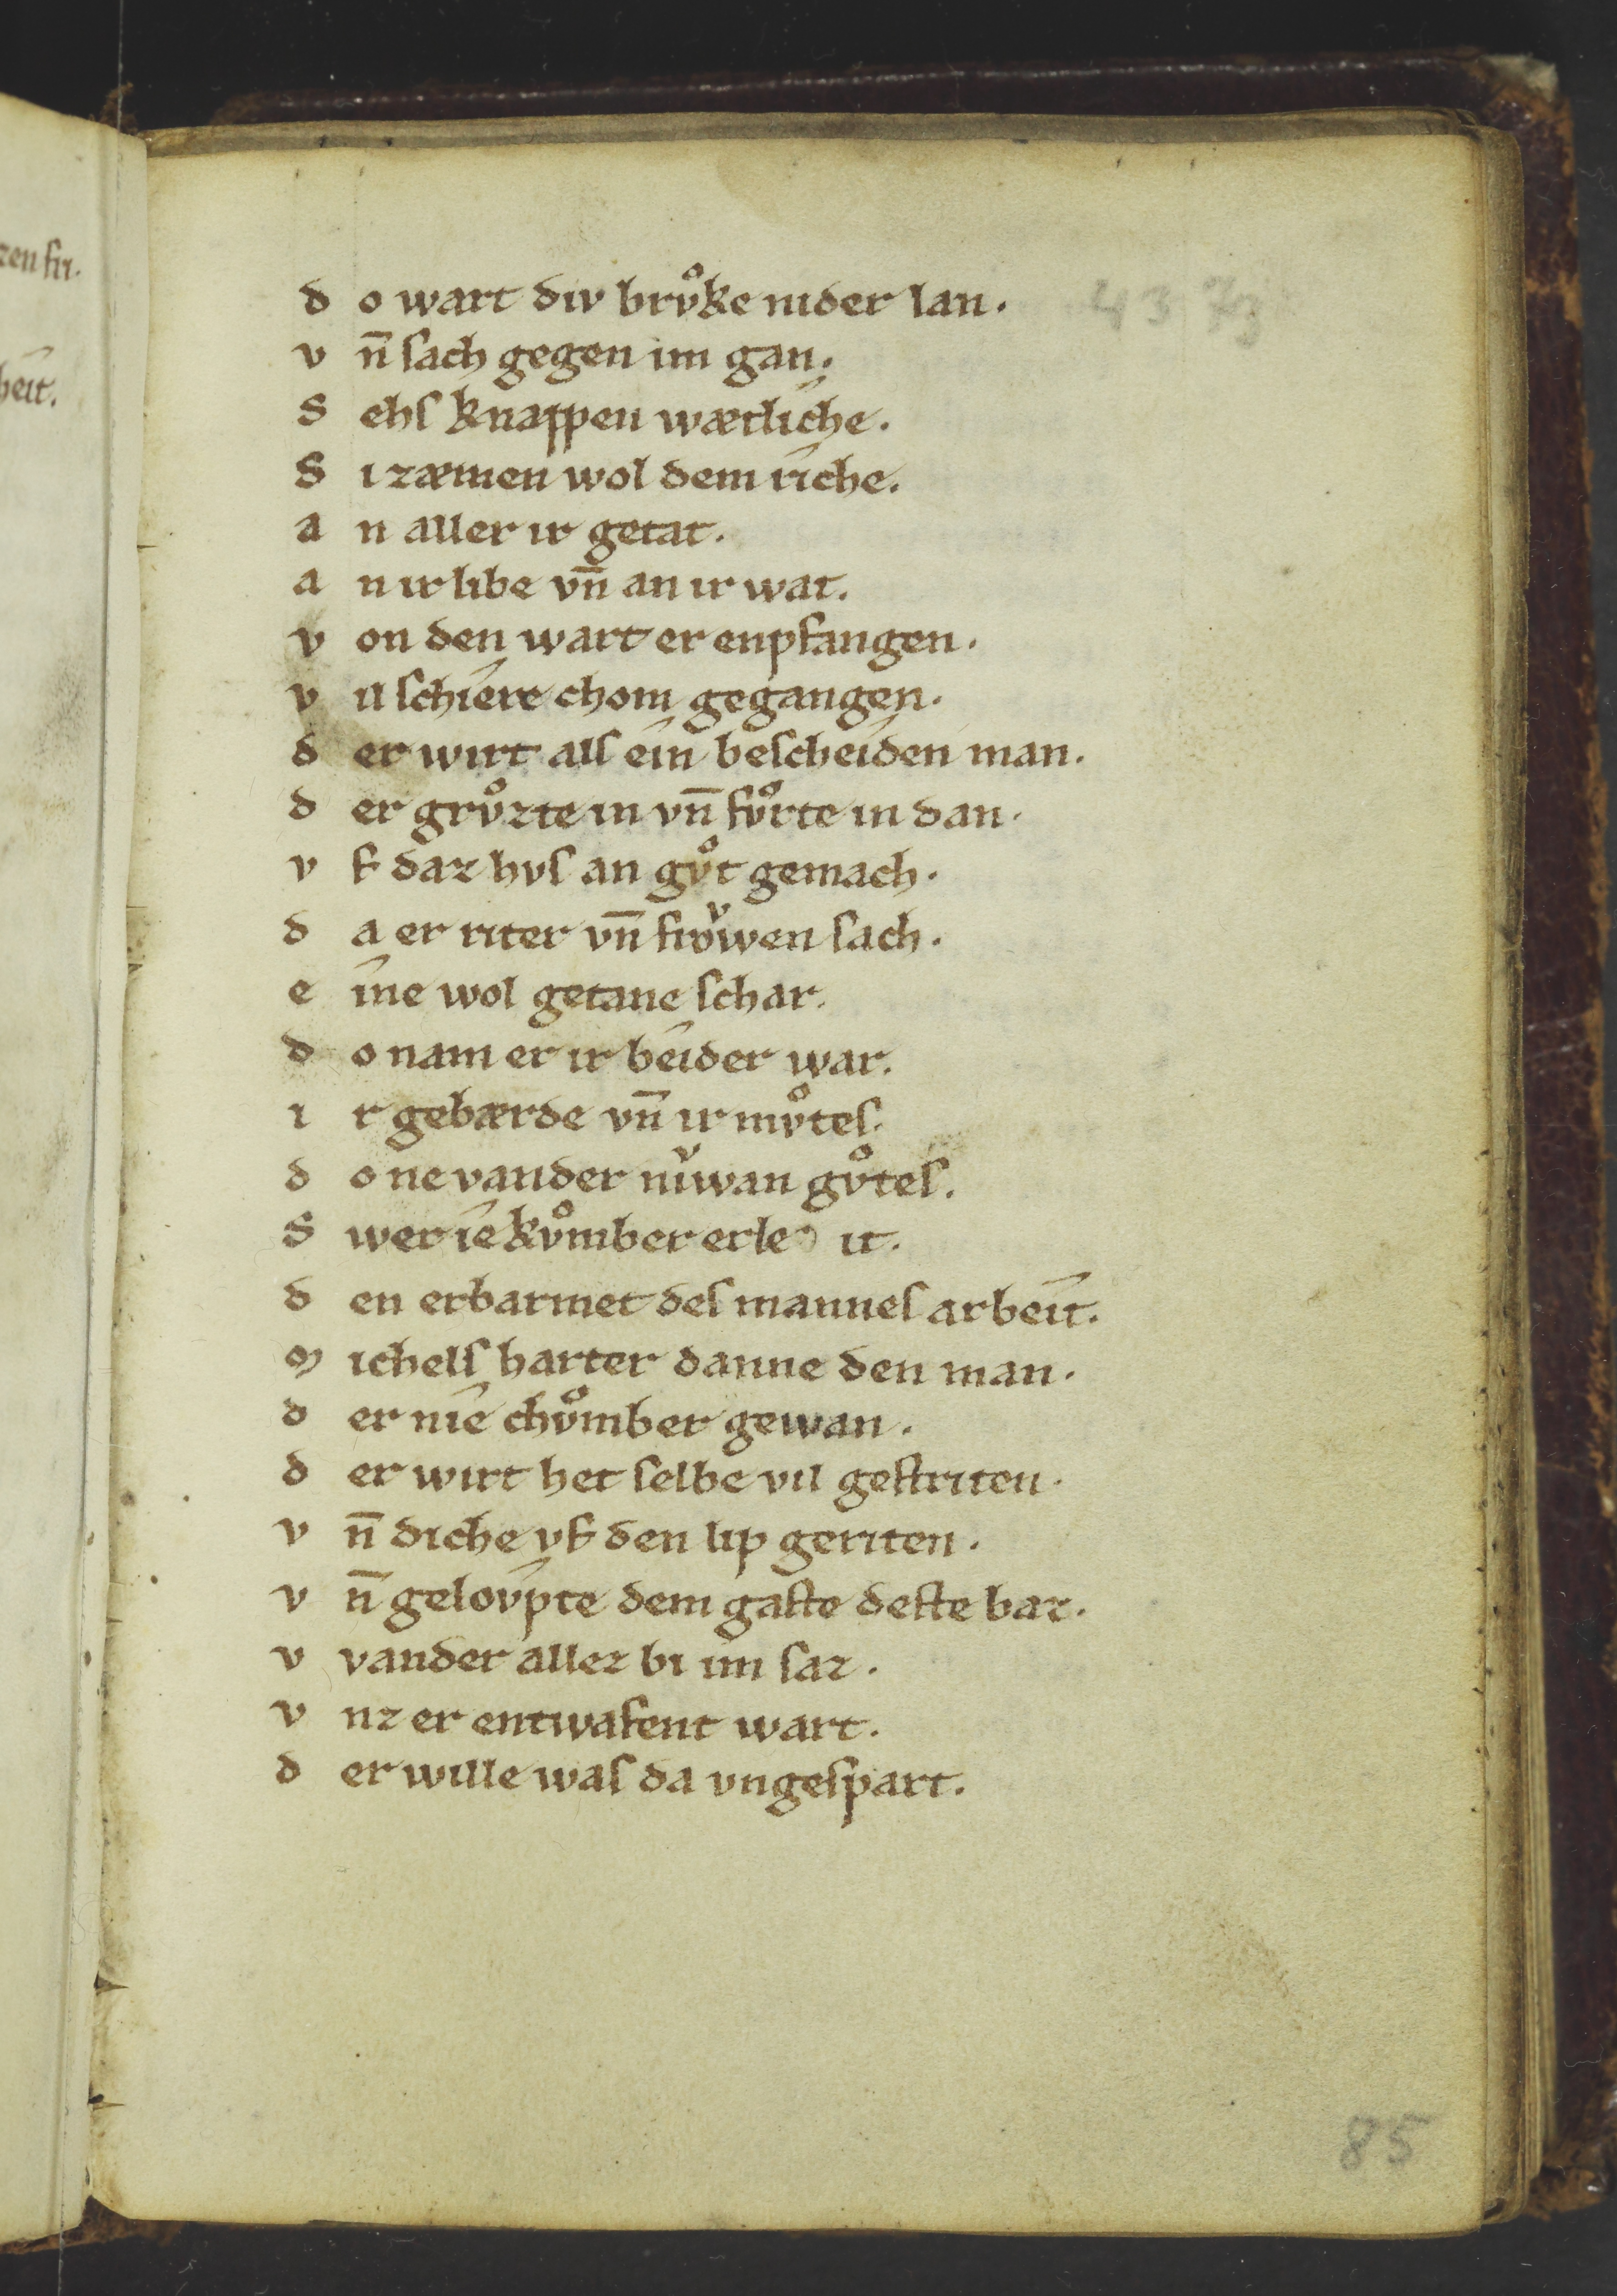 zen sin.
heit.
43 73
d o wart div brvͦke nider lan.
v n̄ sach gegen im gan.
S ehs knappen wætliche.
S i zæmen wol dem riche.
a n aller ir getat.
a n ir libe vn̄ an ir wat.
v on den wart er enpfangen.
v il schiere chom gegangen.
d er wirt als ein bescheiden man.
d er grvͦzte in vn̄ fvͦrte in dan.
v f daz hvs an gvͦt gemach.
d a er riter vn̄ froͮwen sach.
e ine wol getane schar.
d o nam er ir beider war.
i r gebærde vn̄ ir mvͦtes.
d o ne vander niͮwan gvͦtes.
S wer ie kvͦmber erle it.
d en erbarmet des mannes arbeit.
M ichels harter danne den man.
d er nie chvͦmber gewan.
d er wirt het selbe vil gestriten.
v n̄ diche vf den lip geriten.
v n̄ gelovpte dem gaste deste baz.
v vander allez bi im saz.
v nz er entwafent wart.
d er wille was da vngespart.
85